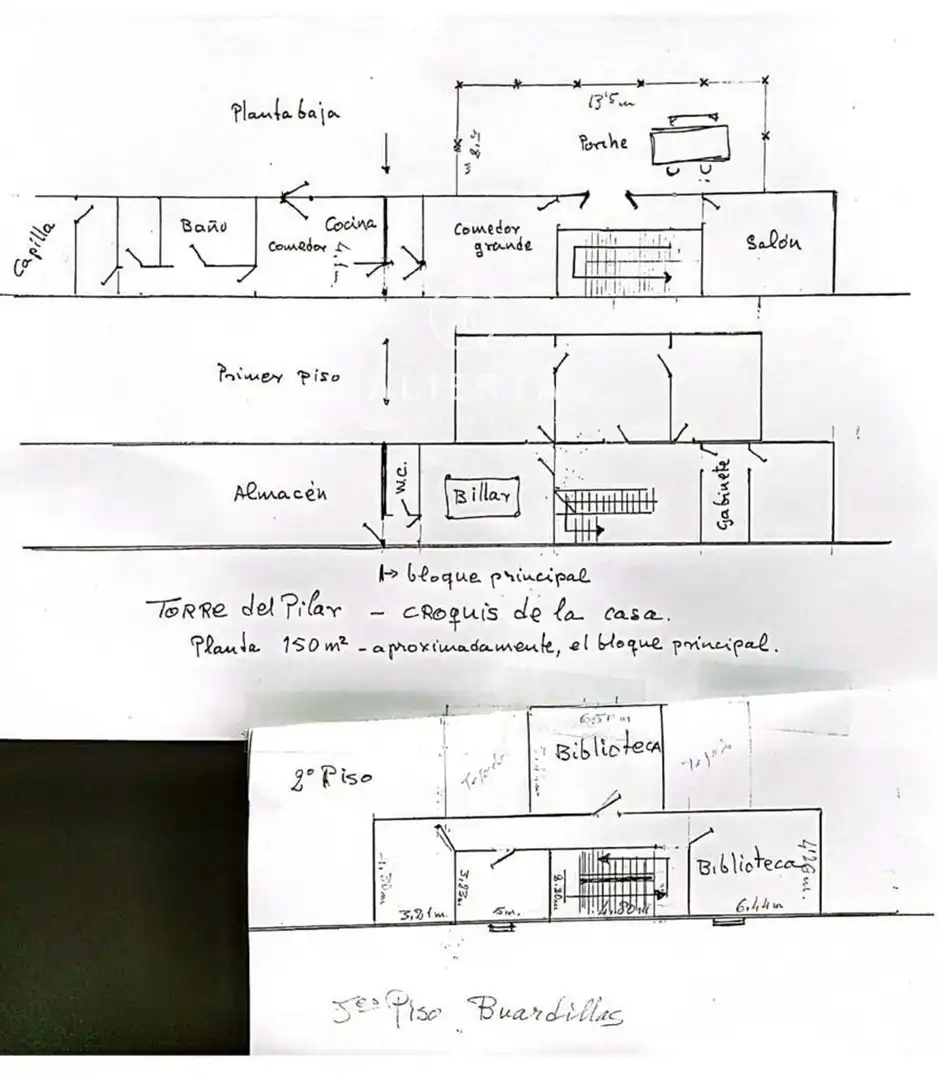 Planta baja
13'5 m
Porche
Capilla
Baño
Comedor
Cocina
Comedor
grande
Salón
Primer piso
ALIERTA
Almacén
W.C.
Billar
Gabinete
↦ bloque principal
TORRE del Pilar - CROQUIS de la casa.
Planta 150 m² - aproximadamente, el bloque principal.
2º Piso
6,50 m
Biblioteca
Tejado
Tejado
Biblioteca
4'26 m.
3,93 m
3,21 m.
5 m.
4,80 m
6,44 m
Piso Buardillas